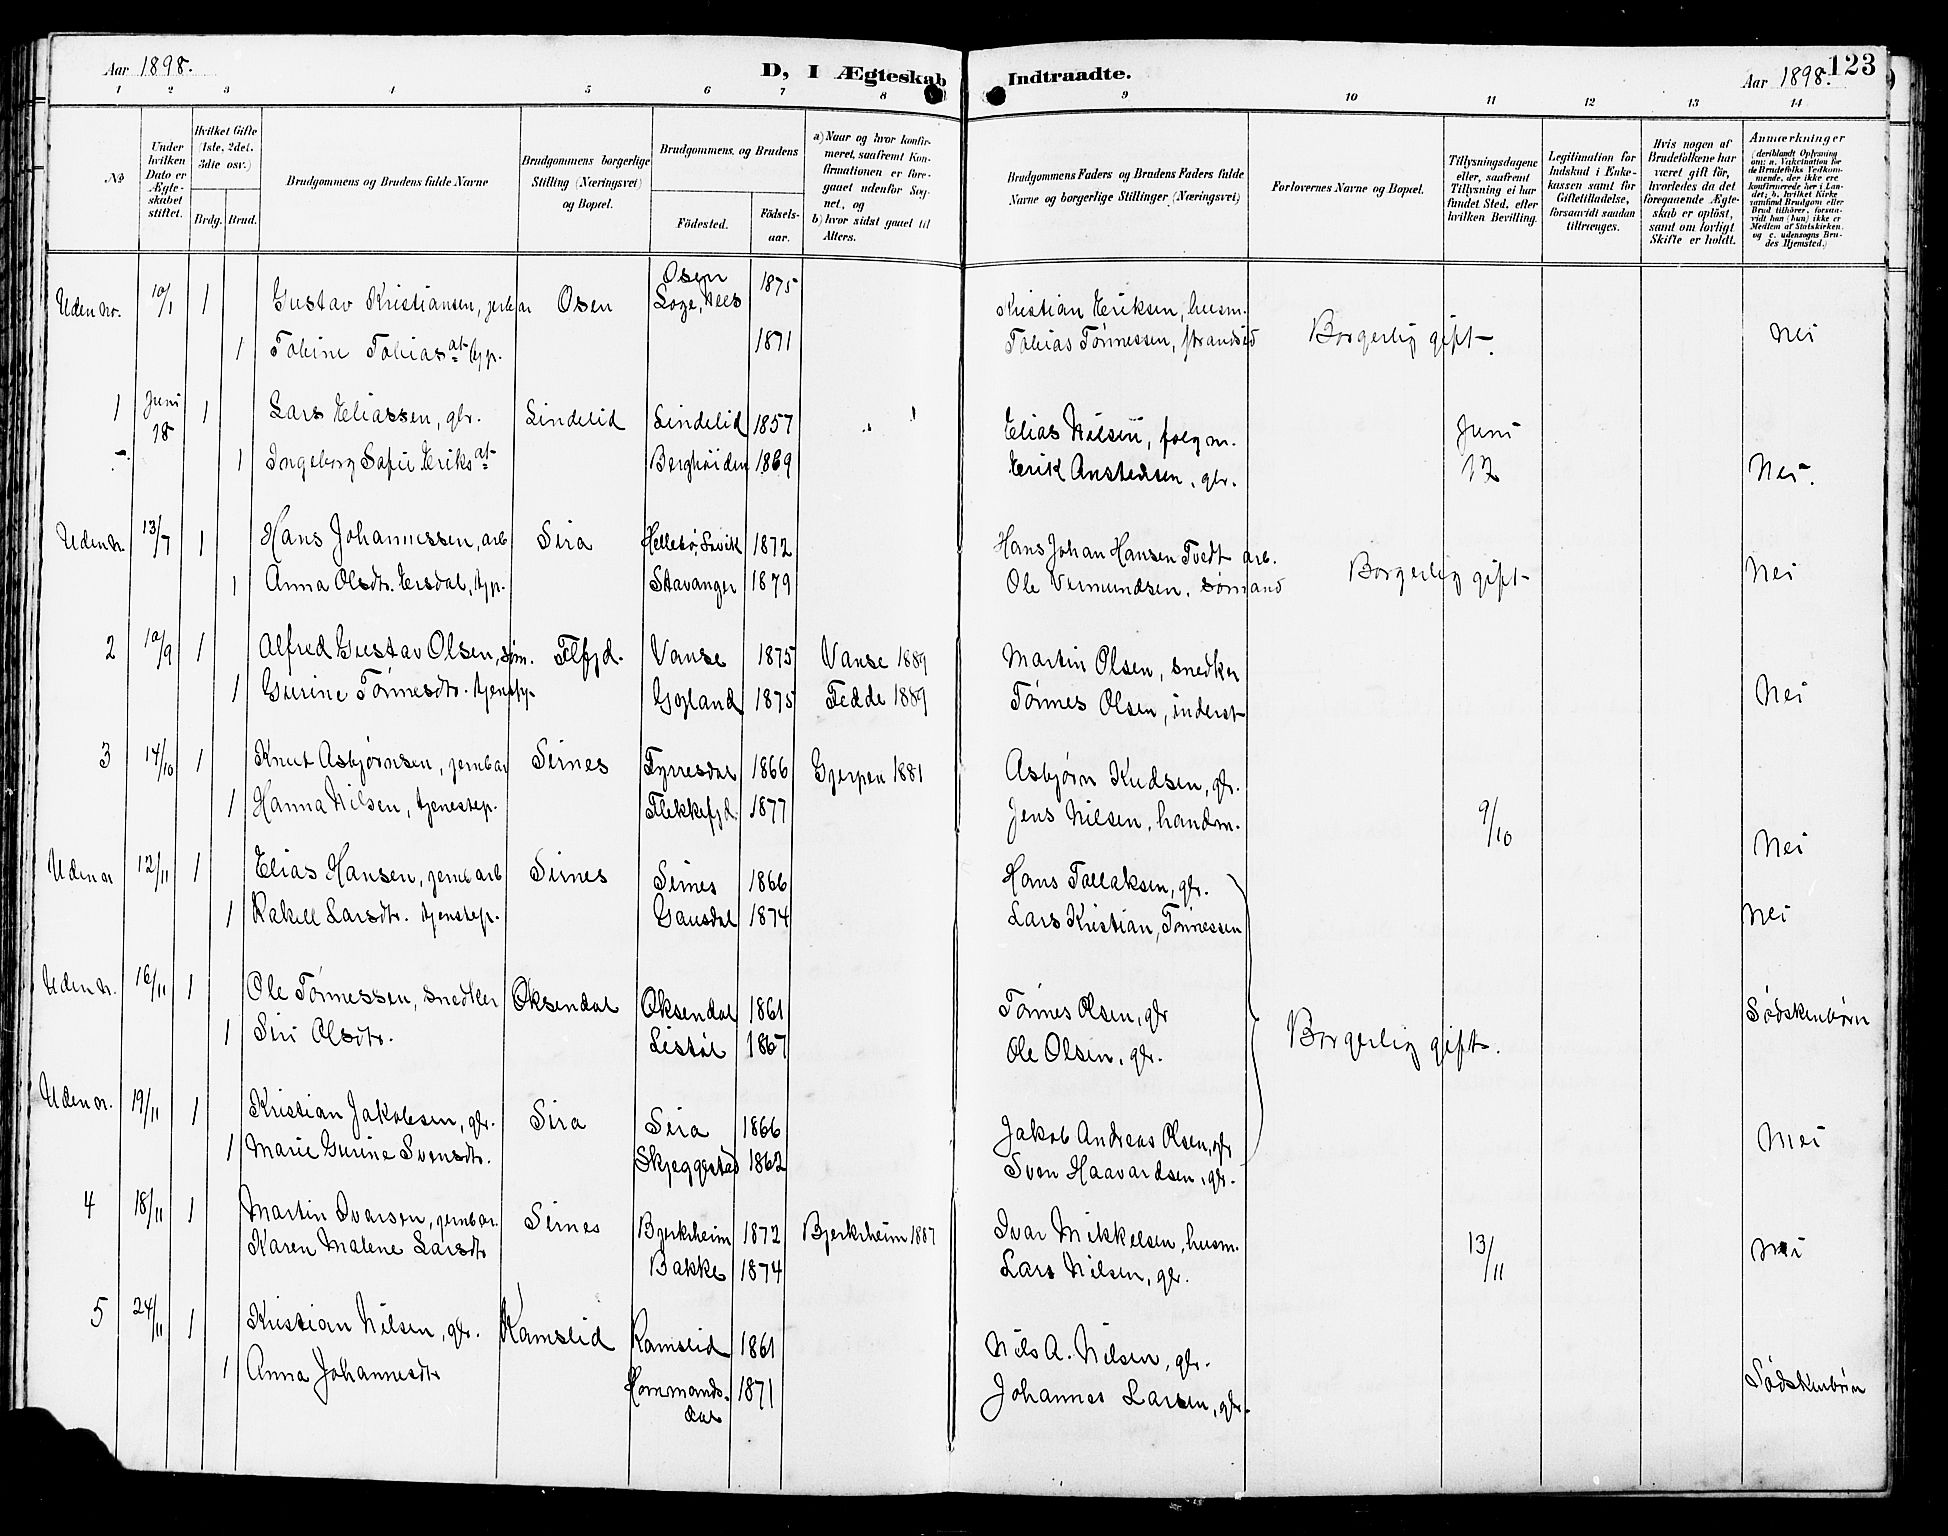 Aar 1898.
D, I Ægteskab Indtraadte.
Aar 1898.
123
1 2 3 4 5 6 7 8 9 10 11 12 13 14
№
Under hvilken Dato er Ægteskabet stiftet.
Hvilket Gifte (1ste, 2det, 3die osv.)
Brdg. Brud.
Brudgommens og Brudens fulde Navne
Brudgommens borgerlige Stilling (Næringsvei) og Bopæl.
Brudgommens og Brudens
Fødested.
Fødselsaar.
a) Naar og hvor konfirmeret, saafremt Konfirmationen er foregaaet udenfor Sognet, og
b) hvor sidst gaaet til Alters.
Brudgommens Faders og Brudens Faders fulde Navne og borgerlige Stillinger (Næringsvei)
Forlovernes Navne og Bopæl.
Tillysningsdagene eller, saafremt Tillysning ei har fundet Sted, efter hvilken Bevilling.
Legitimation for Indskud i Enkekassen samt for Giftetilladelse, forsaavidt saadan tiltrænges.
Hvis nogen af Brudefolkene har været gift før, hvorledes da det foregaaende Ægteskab er opløst, samt om lovligt Skifte er holdt.
Anmærkninger (deriblandt Oplysning om: a. Vakcination for de Brudefolks Vedkommende, der ikke ere konfirmerede her i Landet; b. hvilket Kirkesamfund Brudgom eller Brud tilhører, forsaavidt han (hun) ikke er Medlem af Statskirken, og c. udensogns Brudes Hjemsted.)
Uden nr. 10/1 1 Gustav Kristiansen, jerbar Osen Osen 1875 Kristian Eriksen, husm. Borgerlig gift. Nei
Loge, Nees
1 Tobine Tobiasat- typ. 1871 Tobias Tønnessen, strandsid
1 Juni 18 1 Lars Eliassen, gbr. Lindelid Lindelid 1857 Elias Nilsen, folgm. Juni
- 1 Ingeborg Sofie Eriksat- Berghøiden 1869 Erik Anstensen, gbr. 12 Nei.
Uden n. 13/7 1 Hans Johannessen, arb Sira Hellebø, Lavik 1872 Hans Johan Hansen Tvedt arb. Borgerlig gift Nei
1 Anna Olsdtr. Ersdal, typ. Stavanger 1879 Ole Vermundsen, sømand
2 10/9 1 Alfred Gustav Olsen, søm. Flfjd. Vanse 1875 Vanse 1889 Martin Olsen, snedker
1 Gurine Tønnesdtr. tjenstp. Gyland 1875 Fedde 1889 Tønnes Olsen, inderst Nei
3 14/10 1 Knut Asbjørnsen, jernbar Sirnes Fyrresdal 1866 Gjerpen 1881 Asbjørn Kudsen, gbr.
1 Hanna Nilsen, tjenestep. Flekkefjd. 1877 Jens Nilsen, handm. 9/10 Nei
Uden n 12/11 1 Elias Hansen, jernb arb Sirnes Sirnes 1866 Hans Tallaksen, gbr.
1 Rakell Larsdtr. tjenstep. Gausdal 1874 Lars Kristian, Tønnessen Nei
Uden n. 16/11 1 Ole Tønnessen, snedker Øksendal Øksendal 1861 Tønnes Olsen, gbr Borgerlig gift. Sødskenbørn
1 Siri Olsdtr. Listøl 1867 Ole Olsen, gbr.
Uden n. 19/11 1 Kristian Jakobsen, gbr. Sira Sira 1866 Jakob Andreas Olsen, gbr Nei
1 Marie Gurine Svensdtr. Skjeggestad 1862 Sven Haavardsen, gbr.
4 18/11 1 Martin Ivarsen, jernbar. Sirnes Bjerkrheim 1872 Bjerkrheim 1887 Ivar Mikkelsen, husm. 13/11 Nei
Karen Malene Larsdtr Bakke 1874 Lars Nilsen, gbr.
5 24/11 1 Kristian Nilsen, gbr. Ramslid Ramslid 1861 Nils A. Nilsen, gbr.
1 Anna Johannesdtr Hommandsdal 1871 Johannes Larsen, gbr. Sødskenbørn